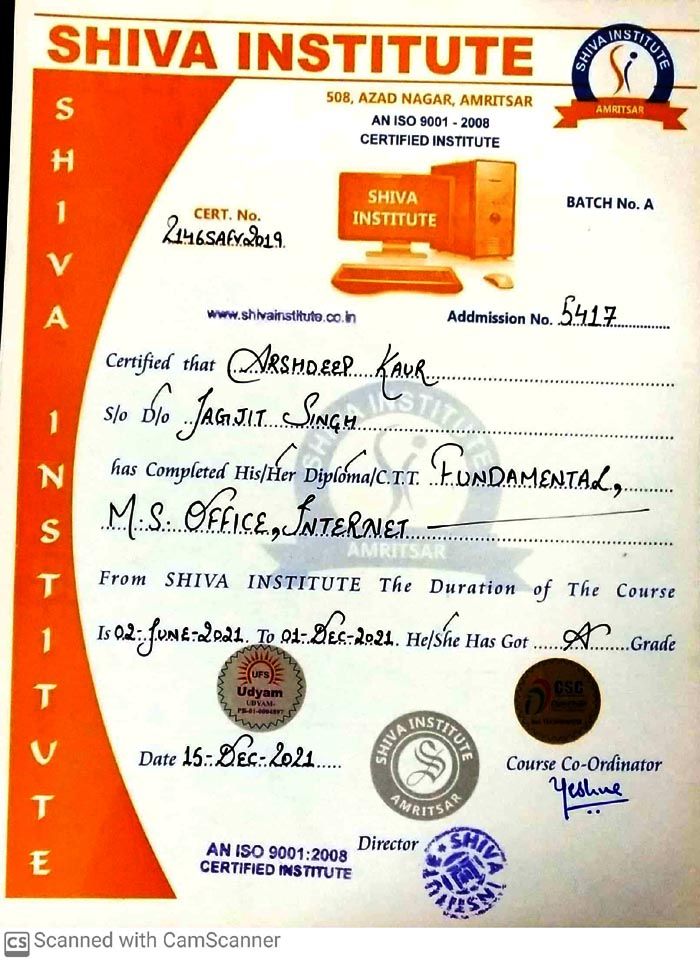 SHIVA INSTITUTE
SHIVA INSTITUTE
AMRITSAR
508, AZAD NAGAR, AMRITSAR
AN ISO 9001 - 2008
CERTIFIED INSTITUTE
SHIVA INSTITUTE
SHIVA
INSTITUTE
BATCH No. A
CERT. No.
2146SAFV2019
www.shivainstitute.co.in
Addmission No. 5417
Certified that ARSHDEEP KAUR
S/o D/o JAGJIT SINGH
SHIVA INSTITUTE
has Completed His/Her Diploma/C.T.T. FUNDAMENTAL,
M.S. OFFICE, INTERNET
AMRITSAR
From SHIVA INSTITUTE The Duration of The Course
Is 02-JUNE-2021. To 01-DEC-2021. He/She Has Got A Grade
UFS
Udyam
UDYAM-
CSC
Date 15-DEC-2021
SHIVA INSTITUTE
AMRITSAR
Course Co-Ordinator
Director
AN ISO 9001:2008
CERTIFIED INSTITUTE
SHIVA INSTITUTE
CS Scanned with CamScanner